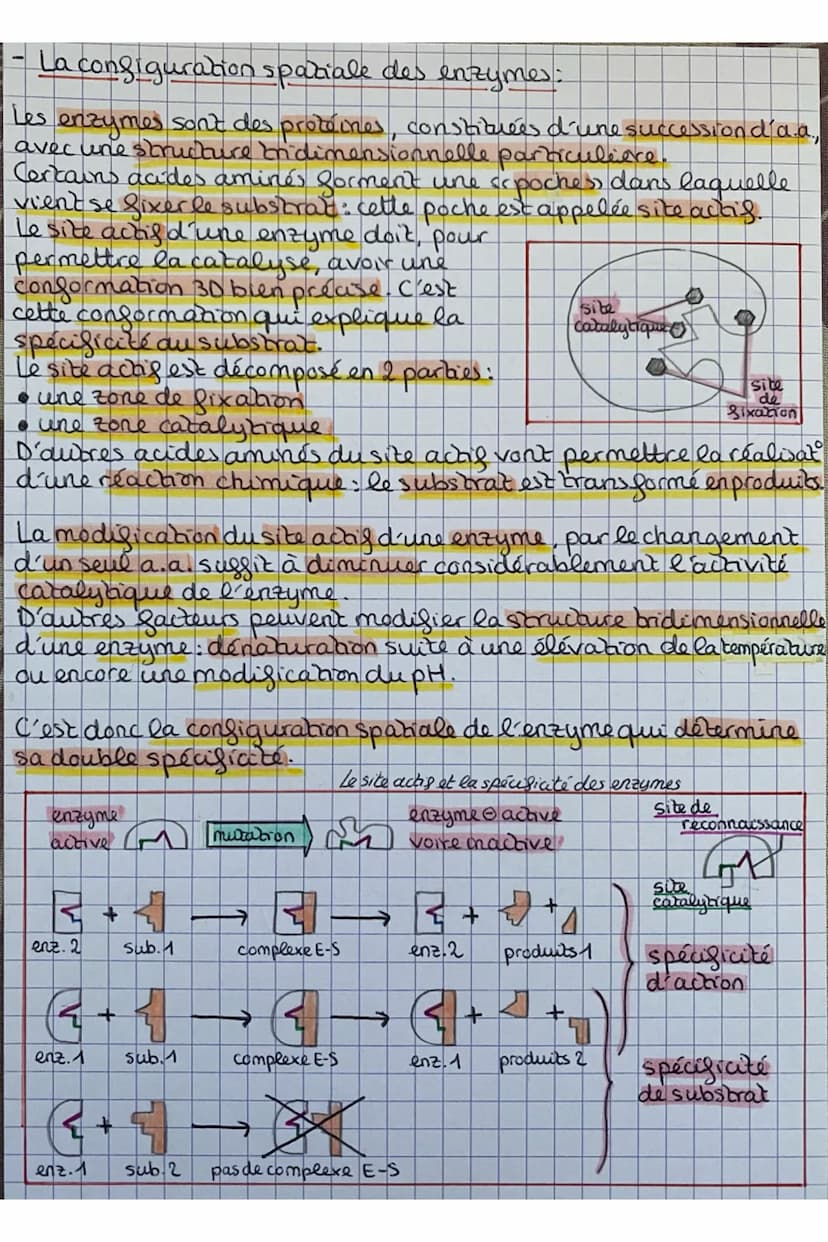 - La configuration spatiale des enzymes :
Les enzymes sont des protéines, constituées d'une succession d'a.a.,
avec une structure tridimensionnelle particulière.
Certains acides aminés forment une « poche » dans laquelle
vient se fixer le substrat : cette poche est appelée site actif.
Le site actif d'une enzyme doit, pour
permettre la catalyse, avoir une
conformation 3D bien précise. C'est
cette conformation qui explique la
spécificité du substrat.
Le site actif est décomposé en 2 parties :
• une zone de fixation
• une zone catalytique
site
catalytique
site
de
fixation
D'autres acides aminés du site actif vont permettre la réalisat°
d'une réaction chimique : le substrat est transformé en produits.
La modification du site actif d'une enzyme, par le changement
d'un seul a.a. suffit à diminuer considérablement l'activité
catalytique de l'enzyme.
D'autres facteurs peuvent modifier la structure tridimensionnelle
d'une enzyme : dénaturation suite à une élévation de la température
ou encore une modification du pH.
C'est donc la configuration spatiale de l'enzyme qui détermine
sa double spécificité.
Le site actif et la spécificité des enzymes
enzyme
active
mutation
enzyme ⊖ active
voire inactive
site de
reconnaissance
site
catalytique
+ → → + +
enz.2 sub.1 complexe E-S enz.2 produits 1
spécificité
d'action
+ → → + +
enz.1 sub.1 complexe E-S enz.1 produits 2
spécificité
de substrat
+ →
enz.1 sub.2 pas de complexe E-S